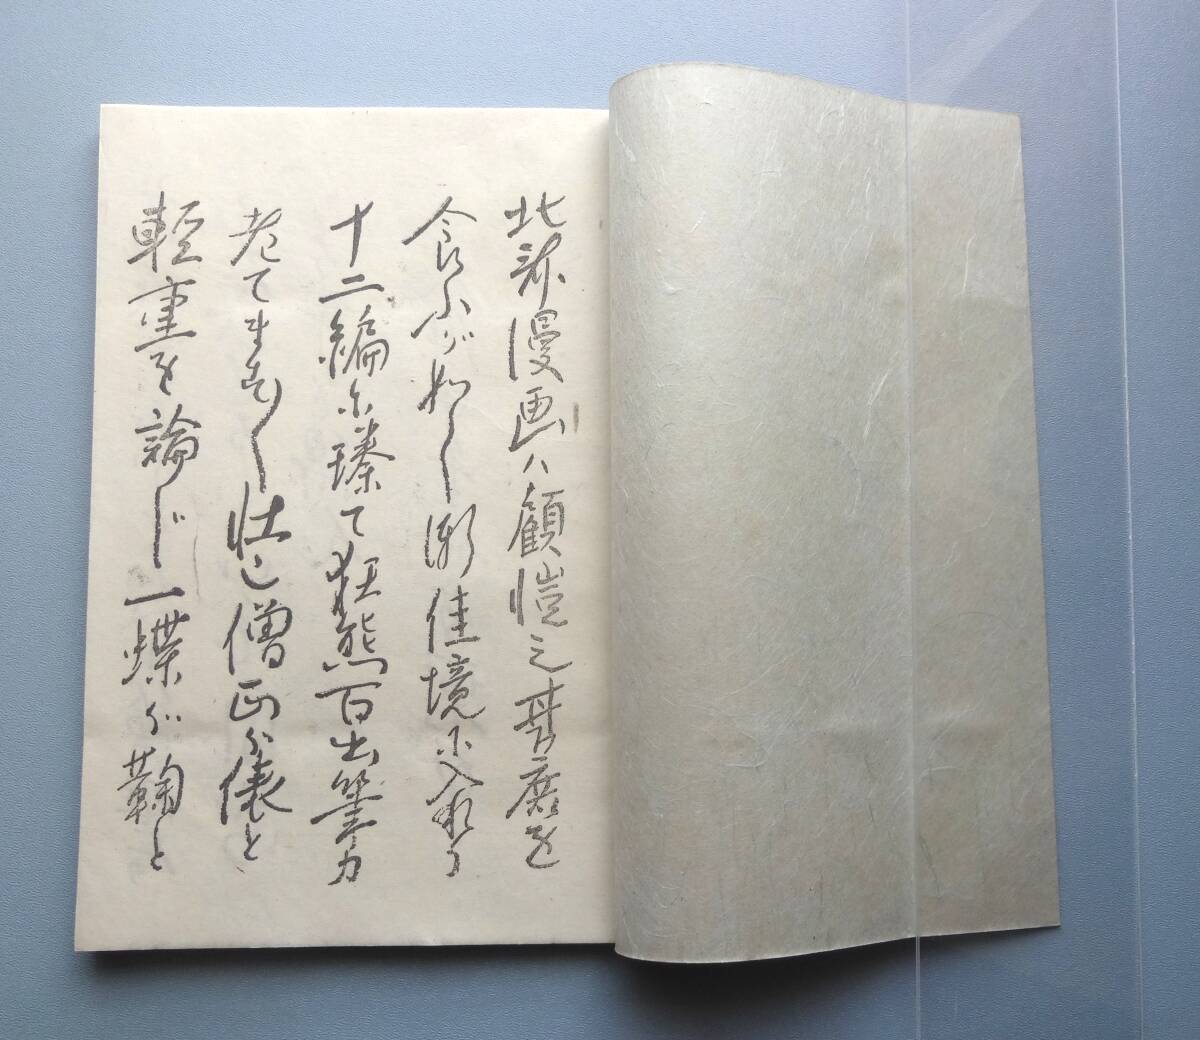 北斎漫画ハ顧愷之甘蔗を
食ふが如し漸佳境に入
十二編に臻て狂態百出筆力
老てます〱壮也僧正が俵と
輕重を論じ一蝶が鞠と